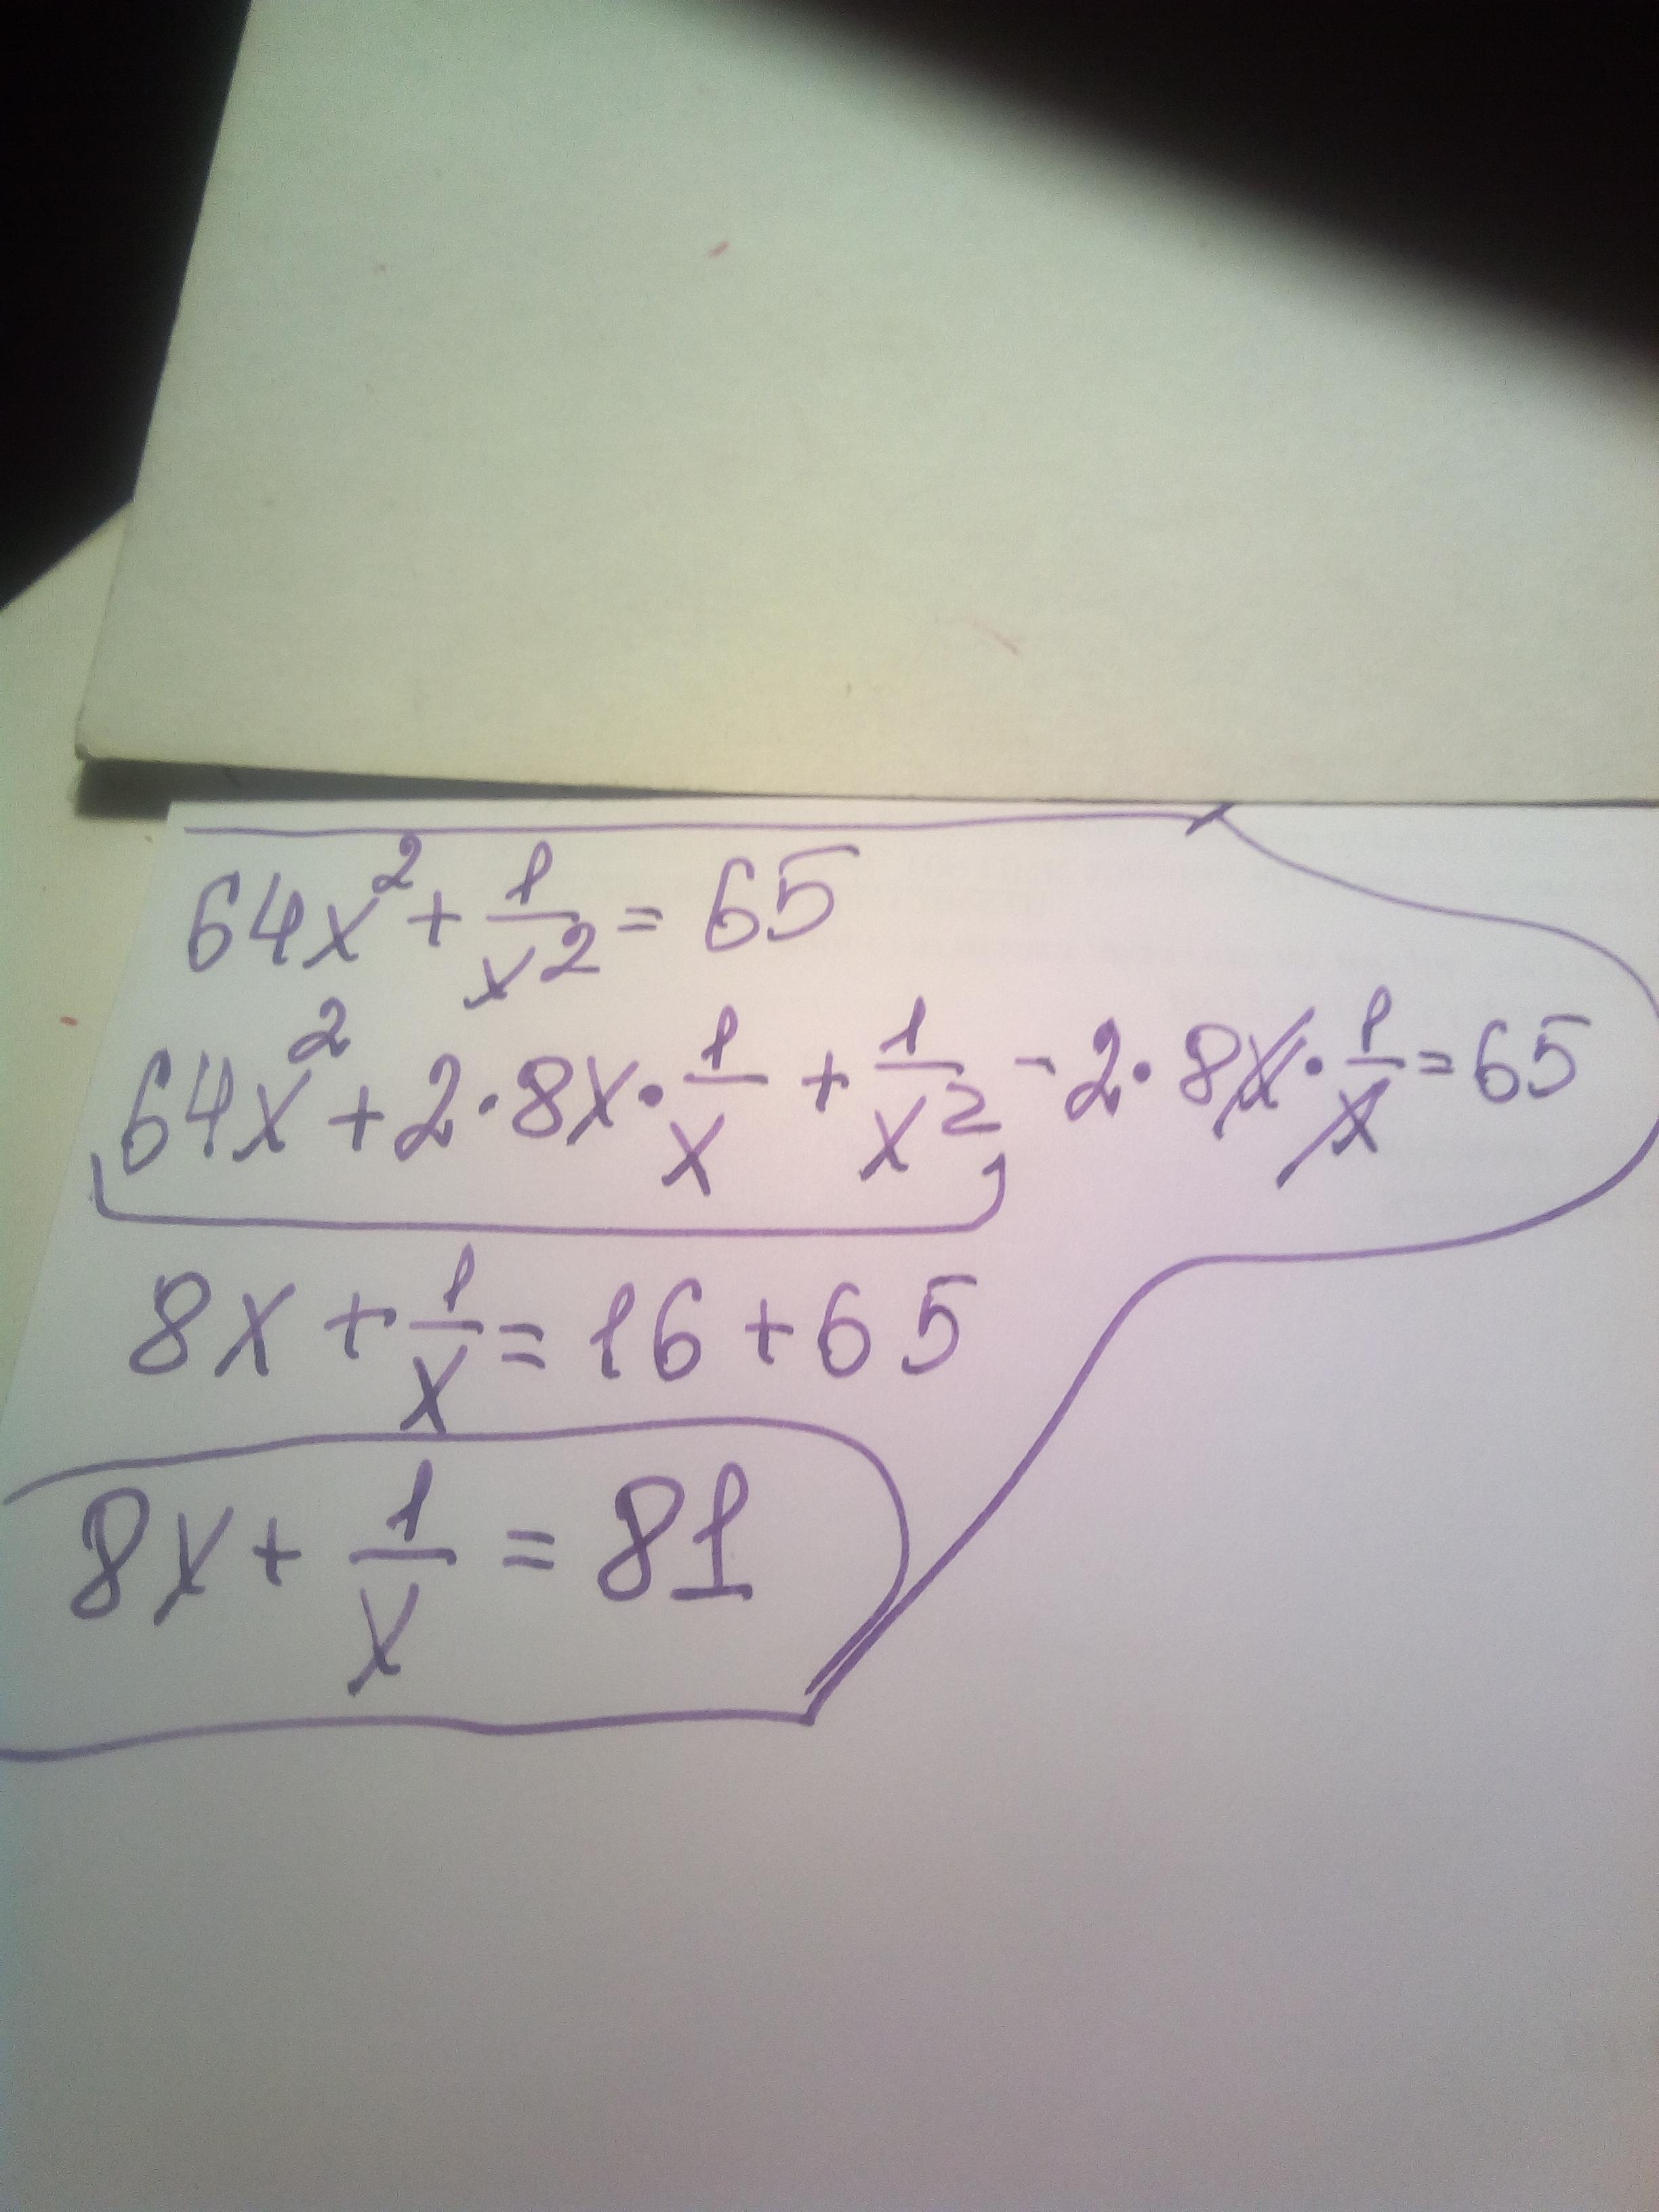 64x² + 1/x² = 65
64x² + 2·8x·1/x + 1/x² - 2·8x·1/x = 65
8x + 1/x = 16 + 65
8x + 1/x = 81